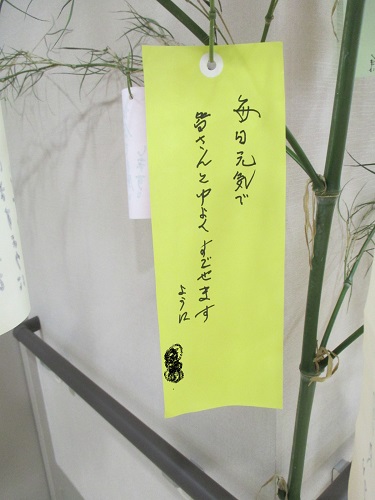 毎日元気で
皆さんと中よくすごせます
ように